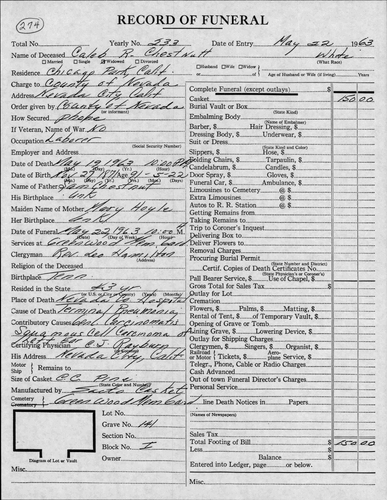 (274)
RECORD OF FUNERAL
Total No. Yearly No. 233 Date of Entry May 22 1963
Name of Deceased Caleb R. Chestnutt White
Married Single Widowed Divorced (What Race)
Residence Chicago Park, Calif. Husband Wife Widow of
Age of Husband or Wife (if living) Years
Charge to County of Nevada
Address Nevada City Calif
Order given by County of Nevada
(or informant)
How Secured phone
If Veteran, Name of War No
Occupation Laborer
(Social Security Number)
Employer and Address
Date of Death May 19, 1963 10:00 PM
Date of Birth
Name of Father Chestnut
His Birthplace Unk
Maiden Name of Mother Mary Hoyle
Her Birthplace Unk
Date of Funeral May 22, 1963 10:00
Services at Greenwood Mem. Gard
Clergyman Rev. Leo Hamilton
Religion of the Deceased
Birthplace Tenn
Resided in the State 43 yr
Place of Death Nevada Co Hospital
Cause of Death Terminal Pneumonia
Contributory Causes Carcinomatis
Squamous Cell Carcinoma of
Certifying Physician E J Rayburn
His Address Nevada City, Calif
Motor Remains to
Ship
Size of Casket
(State Type and Number)
Manufactured by Casket
Cemetery Greenwood Mem Gard
Crematory
Lot No.
Grave No. 141
Section No.
Block No. I
Owner
Diagram of Lot or Vault
Misc.
Complete Funeral (except outlays) $
Casket 150 00
Burial Vault or Box
(State Kind)
Embalming Body
Barber, $ Hair Dressing, $
Dressing Body, $ Underwear, $
Suit or Dress
(State Kind and Color)
Slippers, $ Hose, $
Folding Chairs, $ Tarpaulin, $
Candelabrum, $ Candles, $
Door Spray, $ Gloves, $
Funeral Car, $ Ambulance, $
Limousines to Cemetery @ $
Extra Limousines @ $
Autos to R. R. Station @ $
Getting Remains from
Taking Remains to
Trip to Coroner's Inquest
Delivering Box to
Deliver Flowers to
Removal Charges
Procuring Burial Permit
(State Number and District)
Certif. Copies of Death Certificates No.
Pall Bearer Service, $ Use of Chapel, $
Gross Total for Sales Tax $
Outlay for Lot
Cremation
Flowers, $ Palms, $ Matting, $
Rental of Tent, $ of Temporary Vault, $
Opening of Grave or Tomb
Lining Grave, $ Lowering Device, $
Outlay for Shipping Charges
Clergymen, $ Singers, $ Organist, $
Railroad or Motor Tickets, $ Aeroplane Service, $
Telegr., Phone, Cable or Radio Charges
Cash Advanced
Out of town Funeral Director's Charge
Personal Service
line Death Notices in Papers
(Names of Newspapers)
Sales Tax
Total Footing of Bill $ 150 00
Less $
Balance $
Entered into Ledger, page or below.
Misc.